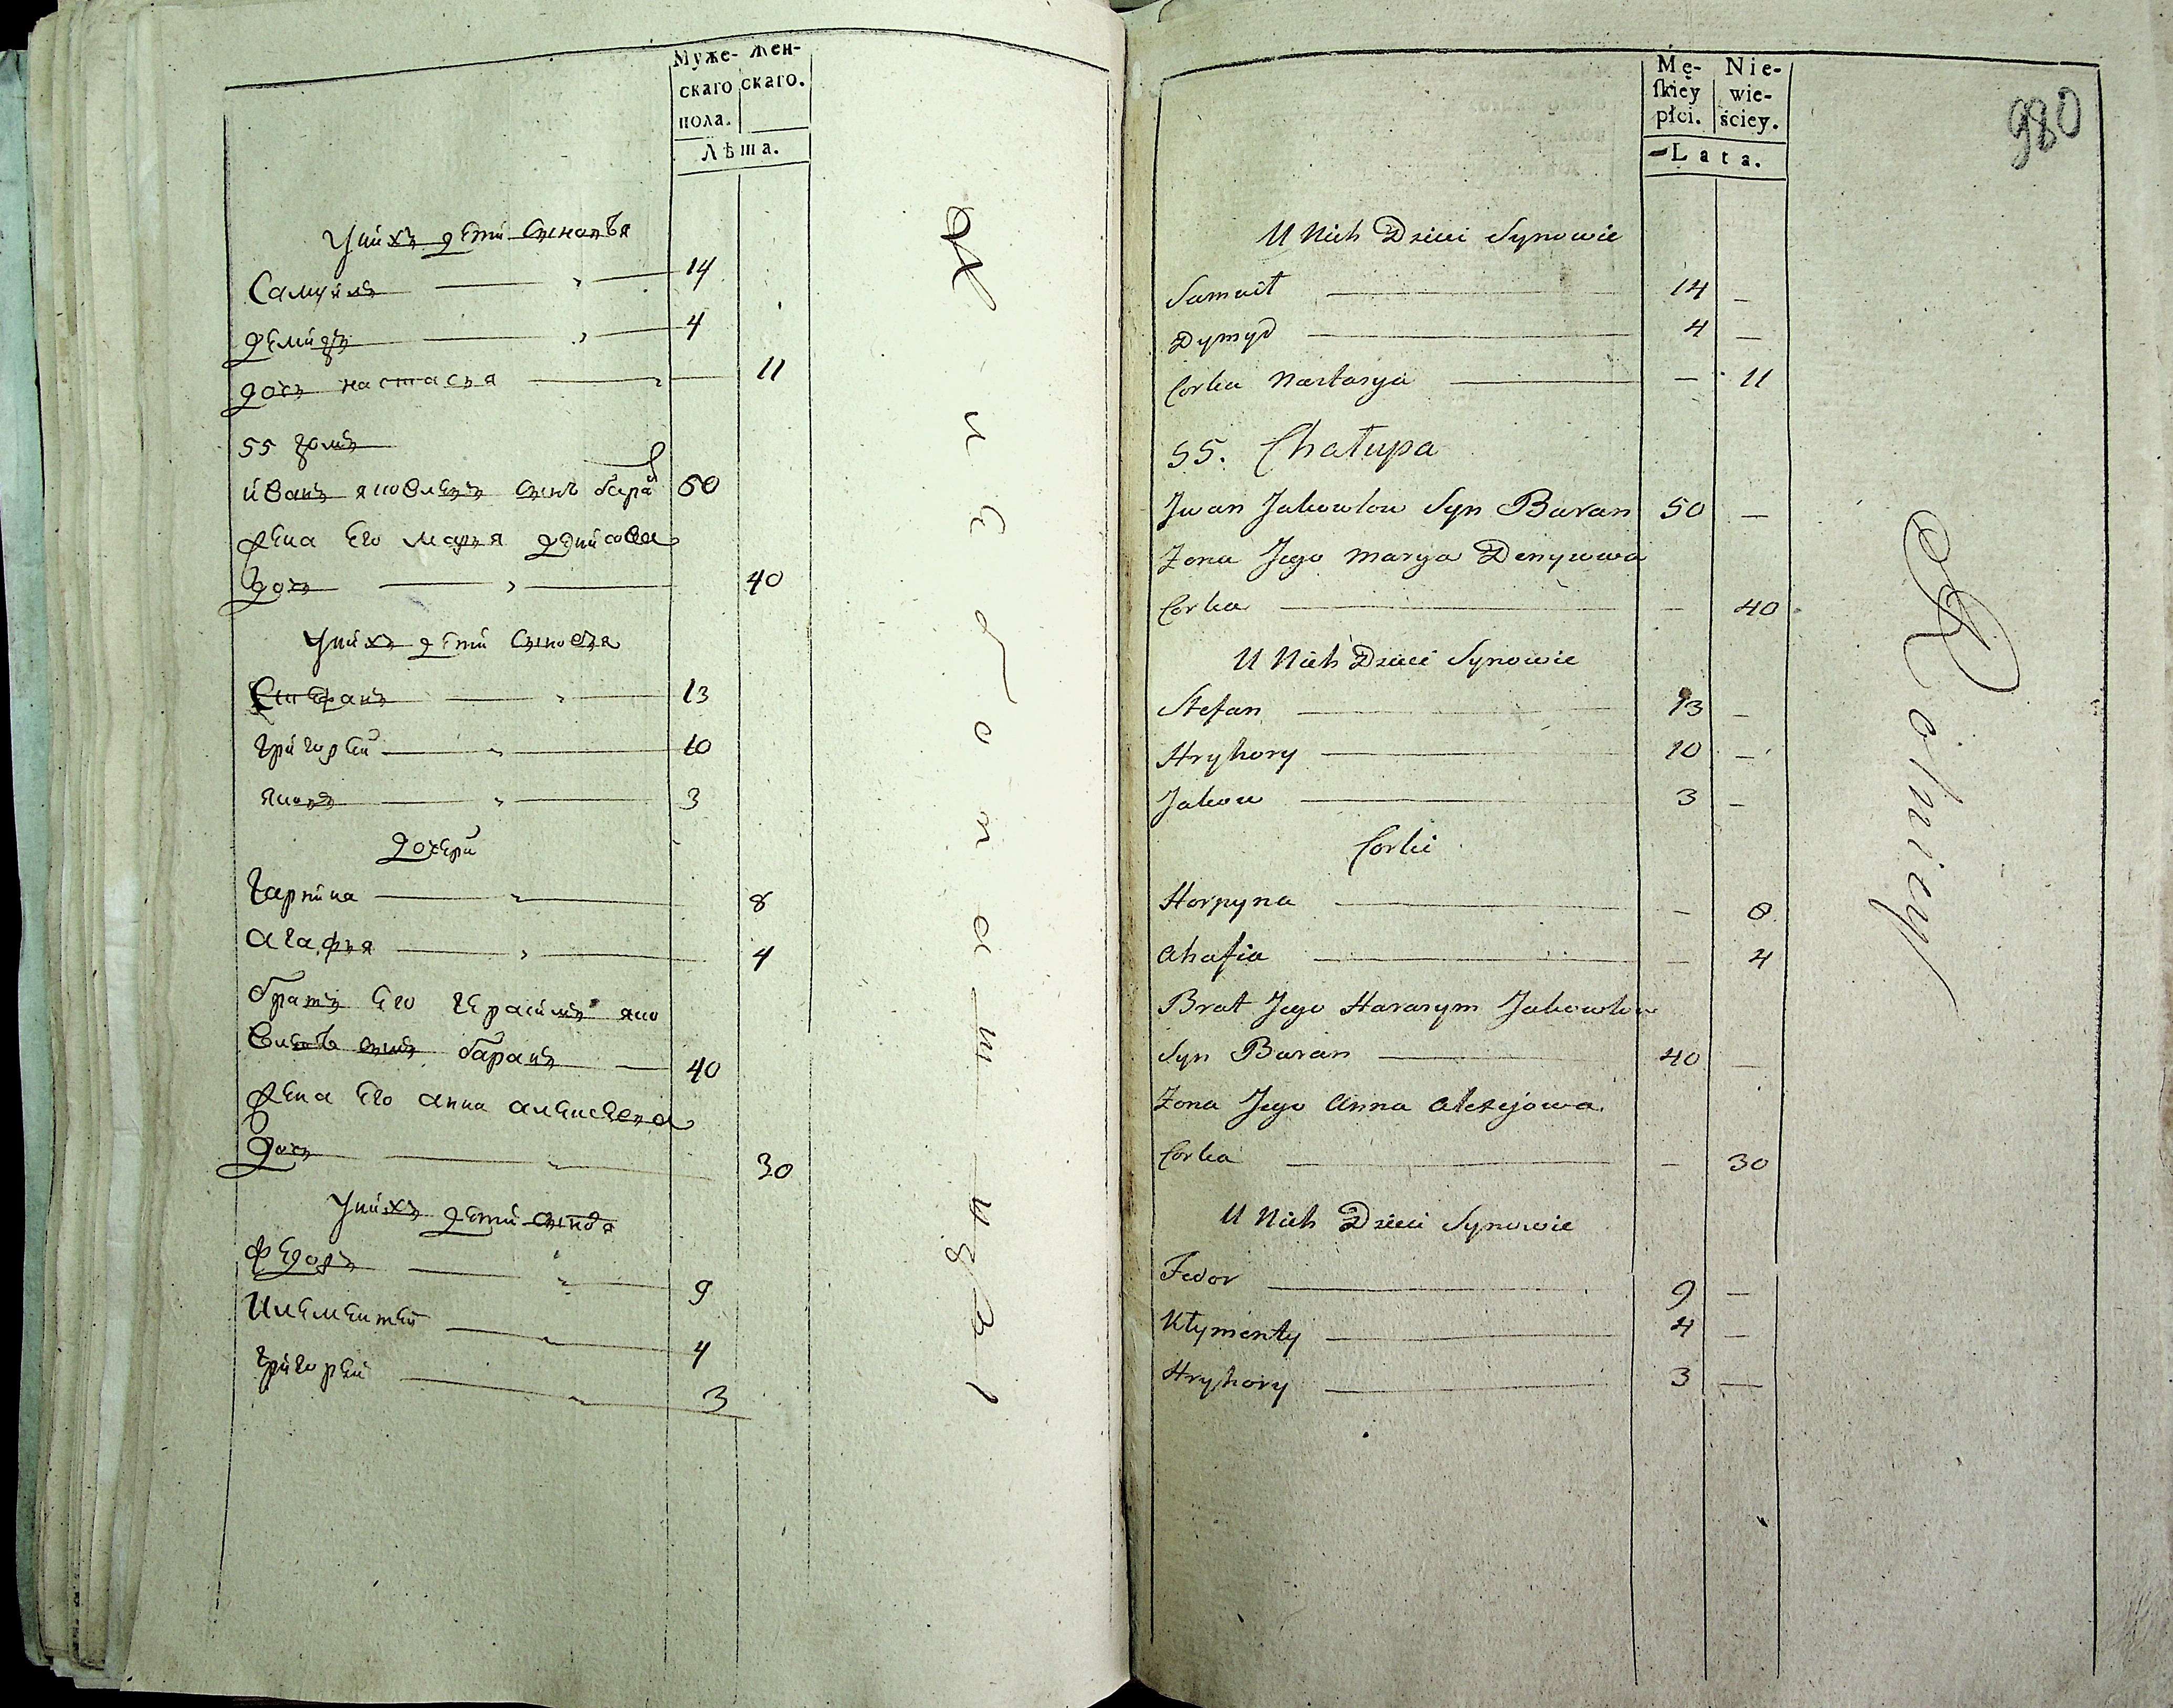 Муже- Жен-
скаго скаго.
пола.
Лѣта.
Унихъ дети Сыновья
Самуилъ 14
Демидъ 4
дочь настасья 11
55 домъ
иванъ яковлевъ сынъ баран 50
Жена Его марья денисова
дочь 40
Унихъ дети Сыновья
Стефанъ 13
григорей 10
яковъ 3
дочери
гарпина 8
агафья 4
братъ Его герасимъ яко
влевъ сынъ баранъ 40
Жена Его анна алексеева
дочь 30
Унихъ дети сыновья
федоръ 9
Клементей 4
григорей 3
Mę- Nie-
skiey wie-
płci. ściey.
Lata.
980
U Nich Dzieci Synowie
Samuił 14 —
Dymyd 4 —
Corka Nastasya — 11
55. Chałupa
Jwan Jakowlow Syn Baran 50 —
Zona Jego Marya Denysowa
Corka — 40
U Nich Dzieci Synowie
Stefan 13 —
Hryhory 10 —
Jakow 3 —
Corki
Horpyna — 8
Ahafia — 4
Brat Jego Harasym Jakowlow
Syn Baran 40 —
Zona Jego Anna Alexejowa
Corka — 30
U Nich Dzieci Synowie
Fedor 9 —
Kłymenty 4 —
Hryhory 3 —